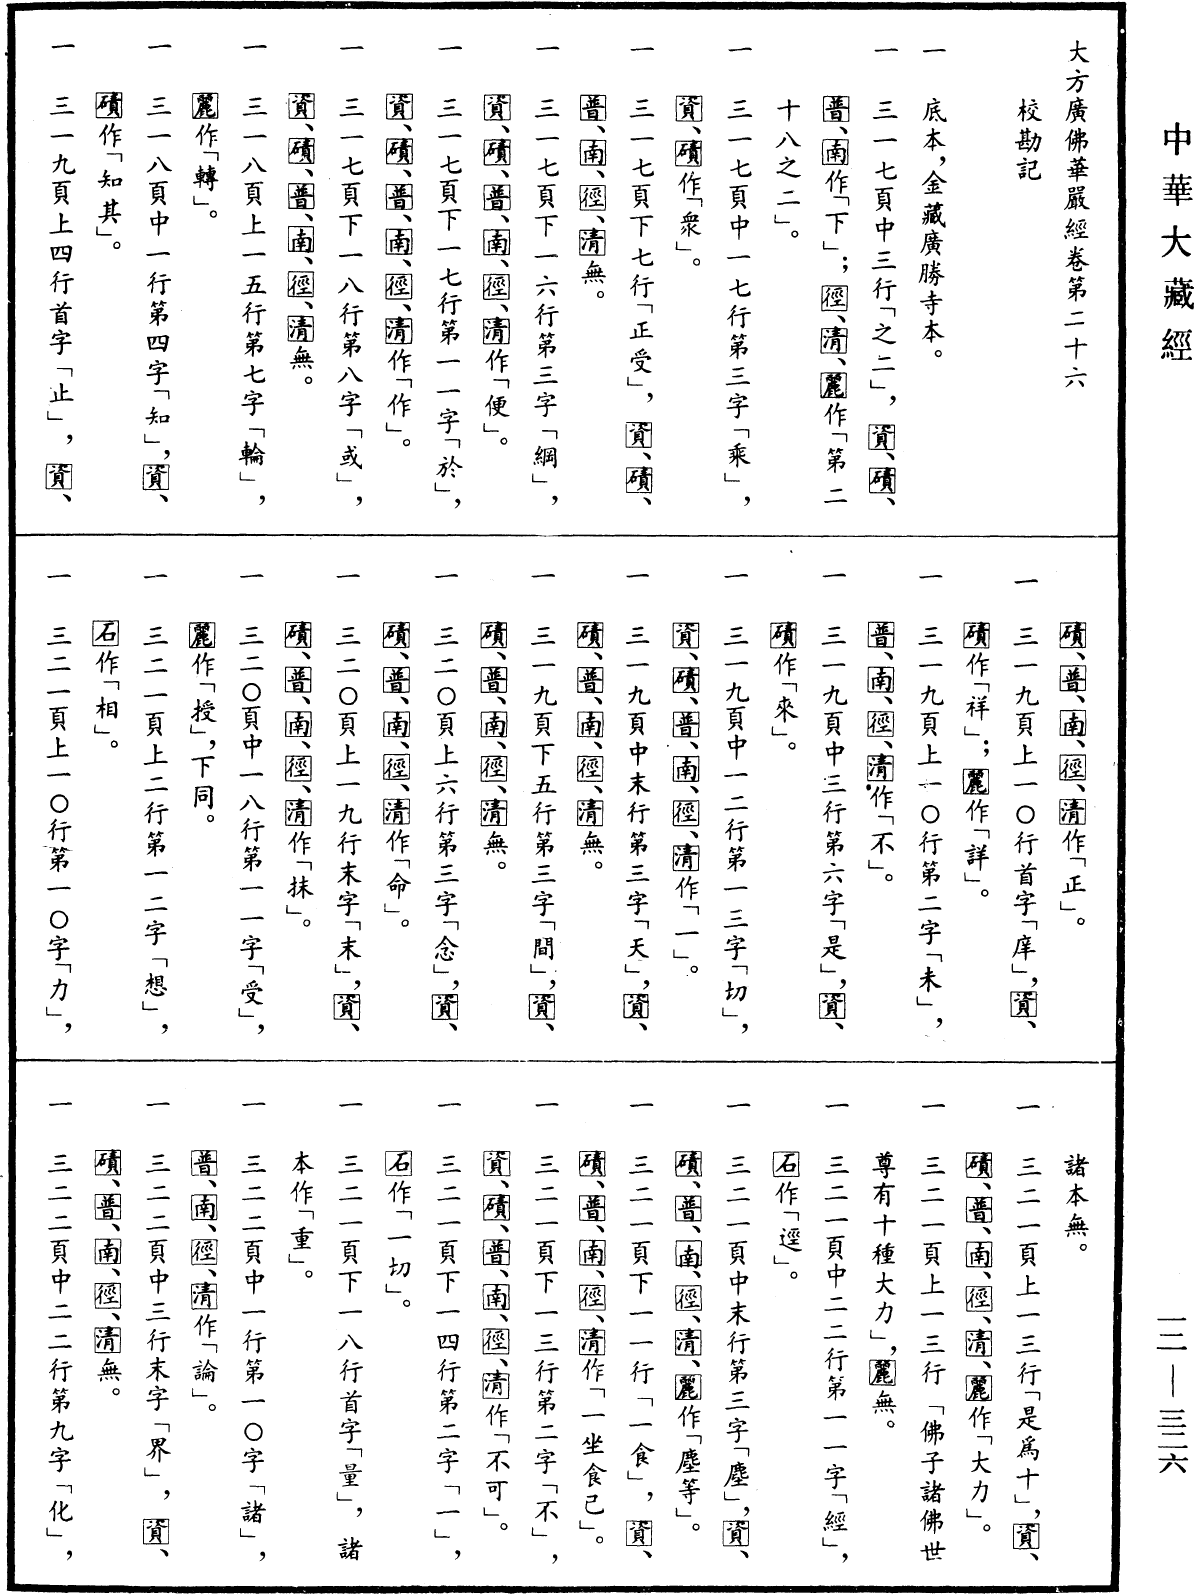 中華大藏經
大方廣佛華嚴經卷第二十六
校勘記
一 底本，金藏廣勝寺本。
一 三一七頁中三行「之二」，資、磧、
普、南作「下」；徑、清、麗作「第二
十八之二」。
一 三一七頁中一七行第三字「乘」，
資、磧作「衆」。
一 三一七頁下七行「正受」，資、磧、
普、南、徑、清無。
一 三一七頁下一六行第三字「綱」，
資、磧、普、南、徑、清作「便」。
一 三一七頁下一七行第一一字「於」，
資、磧、普、南、徑、清作「作」。
一 三一七頁下一八行第八字「或」，
資、磧、普、南、徑、清無。
一 三一八頁上一五行第七字「輪」，
麗作「轉」。
一 三一八頁中一行第四字「知」，資、
磧作「知其」。
一 三一九頁上四行首字「止」，資、
磧、普、南、徑、清作「正」。
一 三一九頁上一〇行首字「庠」，資、
磧作「祥」；麗作「詳」。
一 三一九頁上一〇行第二字「未」，
普、南、徑、清作「不」。
一 三一九頁中三行第六字「是」，資、
磧作「來」。
一 三一九頁中一二行第一三字「切」，
資、磧、普、南、徑、清作「一」。
一 三一九頁中末行第三字「天」，資、
磧、普、南、徑、清無。
一 三一九頁下五行第三字「間」，資、
磧、普、南、徑、清無。
一 三二〇頁上六行第三字「念」，資、
磧、普、南、徑、清作「命」。
一 三二〇頁上一九行末字「末」，資、
磧、普、南、徑、清作「抹」。
一 三二〇頁中一八行第一一字「受」，
麗作「授」，下同。
一 三二一頁上二行第一二字「想」，
石作「相」。
一 三二一頁上一〇行第一〇字「力」，
諸本無。
一 三二一頁上一三行「是爲十」，資、
磧、普、南、徑、清、麗作「大力」。
一 三二一頁上一三行「佛子諸佛世
尊有十種大力」，麗無。
一 三二一頁中二二行第一一字「經」，
石作「逕」。
一 三二一頁中末行第三字「塵」，資、
磧、普、南、徑、清、麗作「塵等」。
一 三二一頁下一一行「一食」，資、
磧、普、南、徑、清作「一坐食已」。
一 三二一頁下一三行第二字「不」，
資、磧、普、南、徑、清作「不可」。
一 三二一頁下一四行第二字「一」，
石作「一切」。
一 三二一頁下一八行首字「量」，諸
本作「重」。
一 三二二頁中一行第一〇字「諸」，
普、南、徑、清作「論」。
一 三二二頁中三行末字「界」，資、
磧、普、南、徑、清無。
一 三二二頁中二二行第九字「化」，
一二—三二六